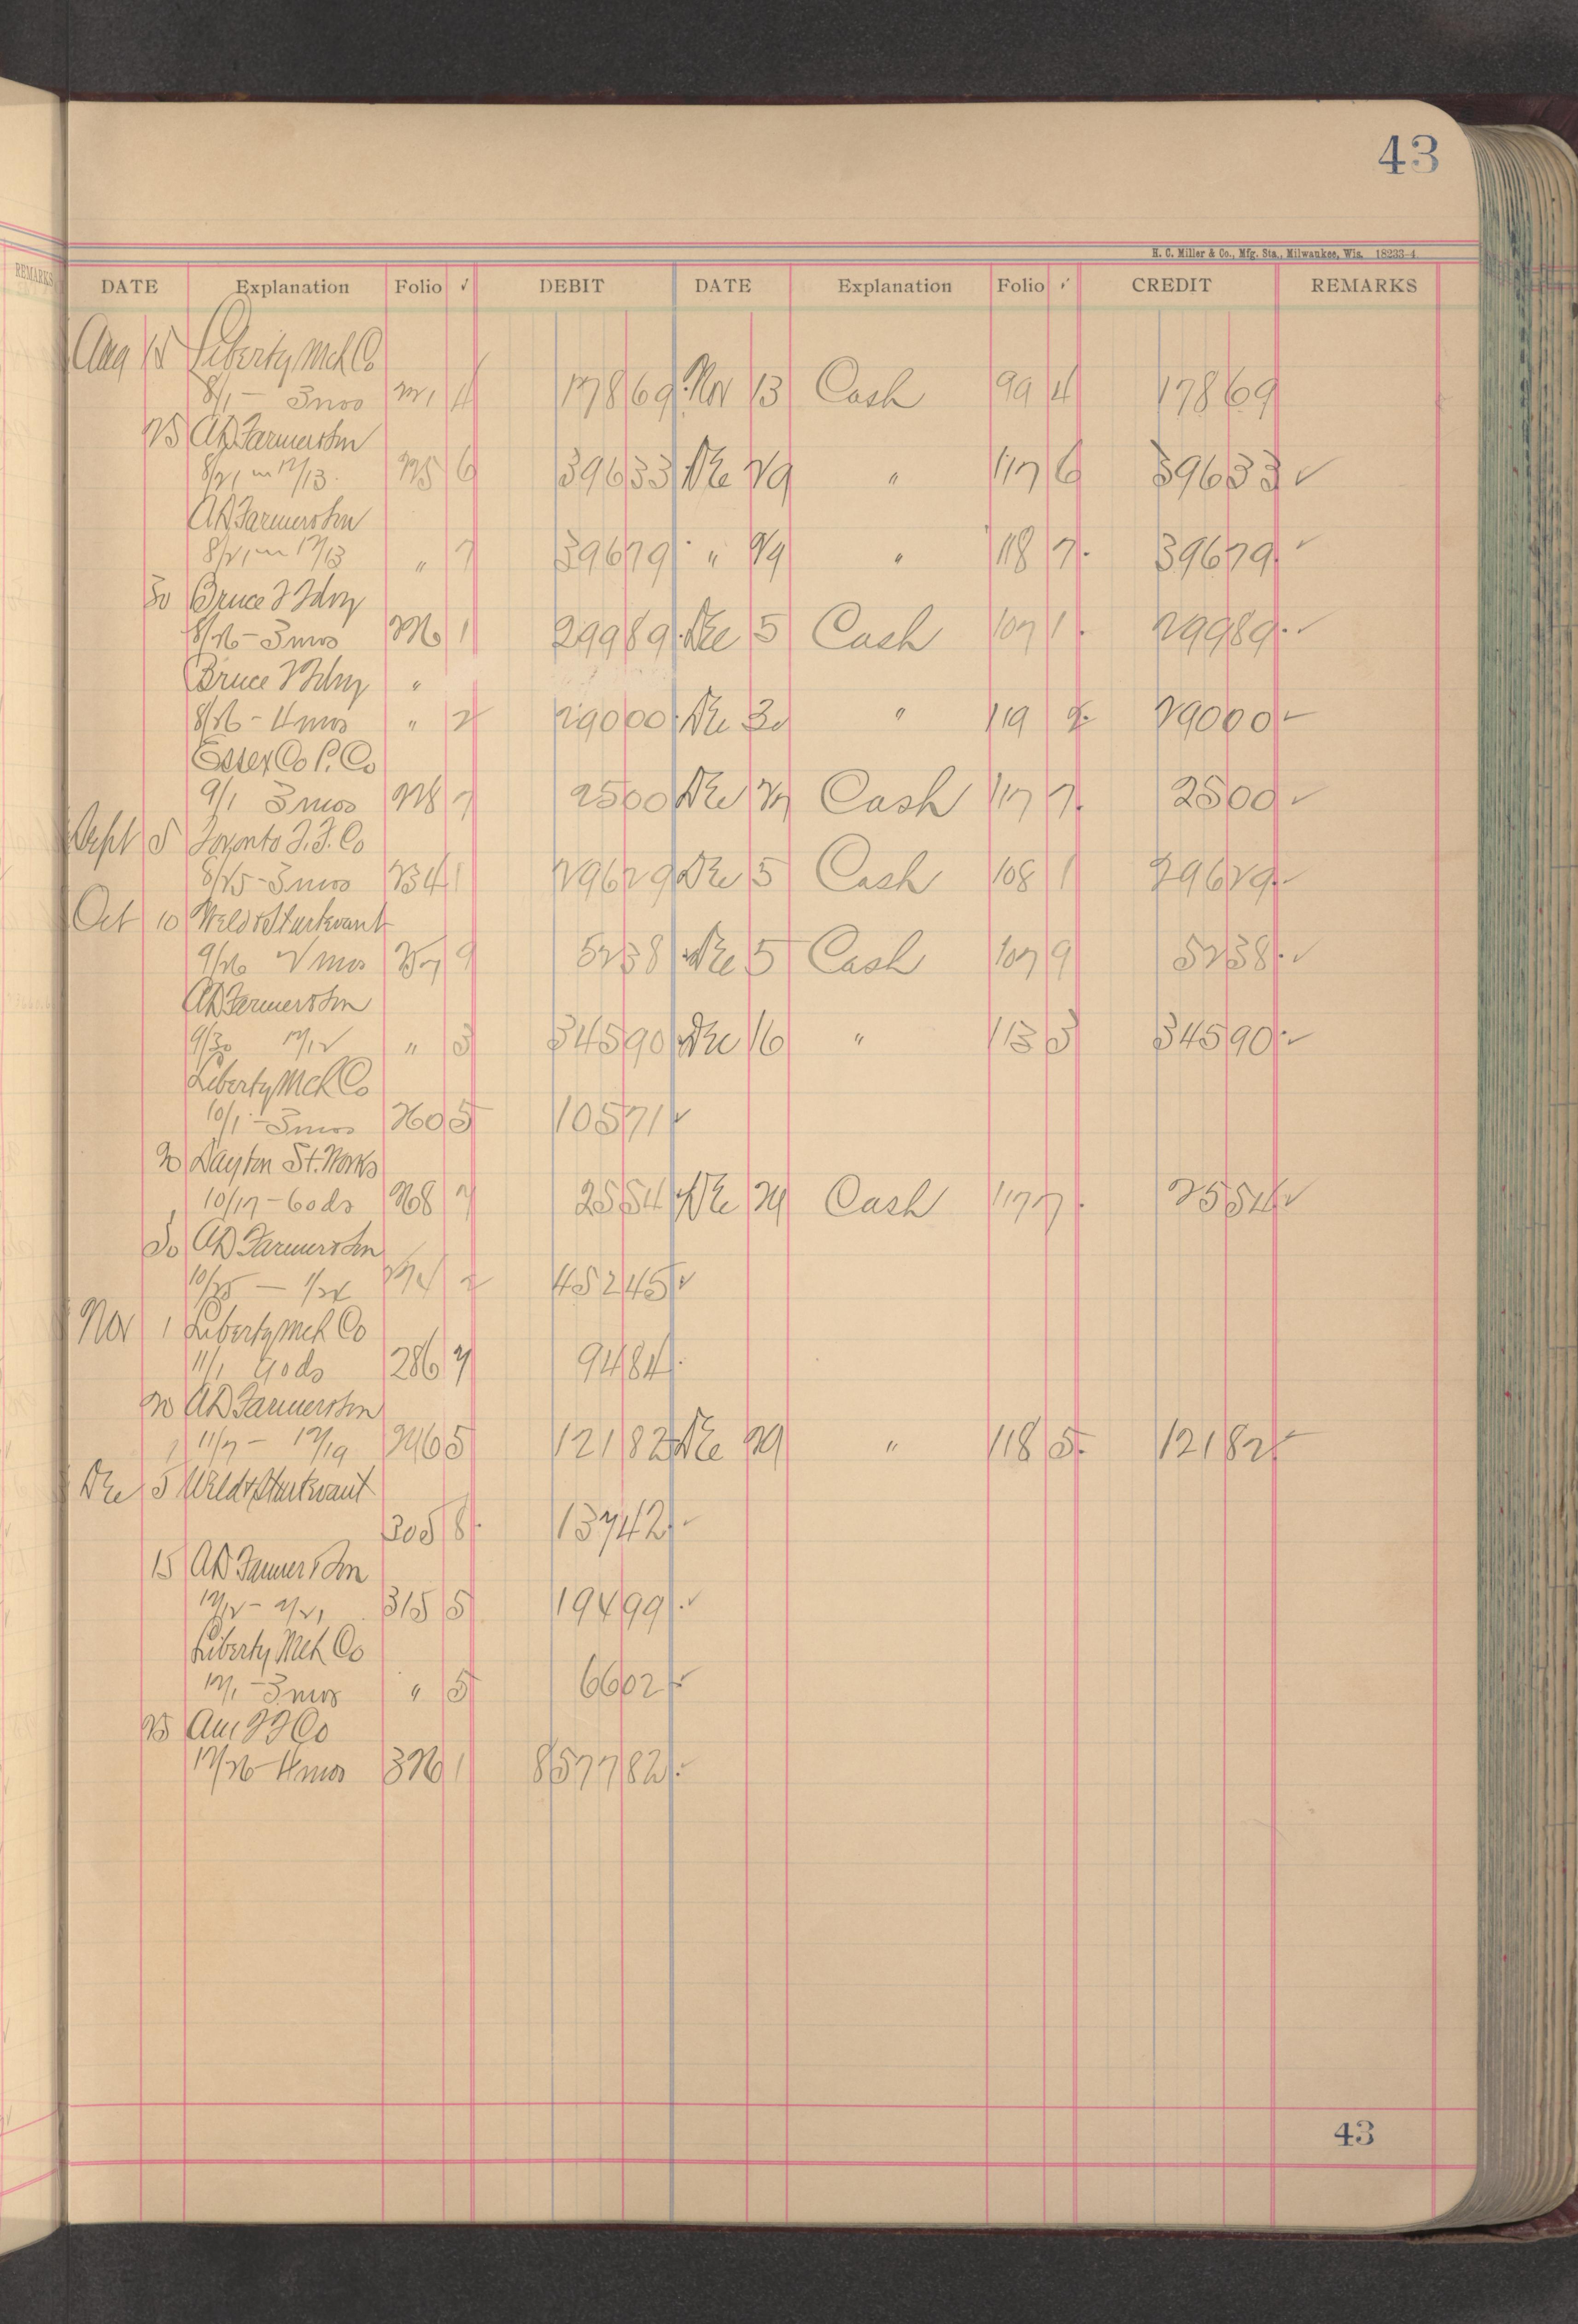 43
H. C. Miller & Co., Mfg. Sta., Milwaukee, Wis. 18233-4
REMARKS
DATE Explanation Folio ✓ DEBIT DATE Explanation Folio ✓ CREDIT REMARKS
Aug 15 Liberty Mch Co
8/1 - 3 mos 4 178 69 Nov 13 Cash 99 4 178 69
25 AD Farmer & Son
8/21 12/13 6 396 33 Dec 29 " 117 6 396 33 ✓
AD Farmer & Son
8/21 12/13 " 7 396 79 " 29 " 118 7 396 79 ✓
30 Bruce
8/26 - 3 mos 1 299 89 Dec 5 Cash 107 1 299 89 ✓
Bruce "
8/26 - 4 mos " 2 290 00 Dec 30 " 119 2 290 00 ✓
Essex Co P. Co
9/1 3 mos 7 25 00 Dec 27 Cash 117 7 25 00 ✓
Sept 5 Toronto T. F. Co
8/25 - 3 mos 234 1 296 29 Dec 5 Cash 108 1 296 29 ✓
Oct 10 Weld & Sturtevant
9/26 2 mos 257 9 52 38 Dec 5 Cash 107 9 52 38 ✓
AD Farmer & Son
9/30 12/12 " 3 345 90 Dec 16 " 113 3 345 90 ✓
Liberty Mch Co
10/1 - 3 mos 260 5 105 71 ✓
20 Dayton St. Works
10/17 - 60 ds 268 7 25 54 Dec 29 Cash 117 7 25 54 ✓
30 AD Farmer & Son
10/25 - 1/24 2 452 45 ✓
Nov 1 Liberty Mch Co
11/1 90 ds 286 7 94 84
20 AD Farmer & Son
11/7 - 12/19 296 5 121 82 Dec 29 " 118 5 121 82 ✓
Dec 5 Weld & Sturtevant
305 8 137 42 ✓
15 AD Farmer & Son
12/12 - 2/21 315 5 194 99 ✓
Liberty Mch Co
12/1 - 3 mos " 5 66 02 ✓
25 Am T F Co
12/26 - 4 mos 326 1 8577 82
43